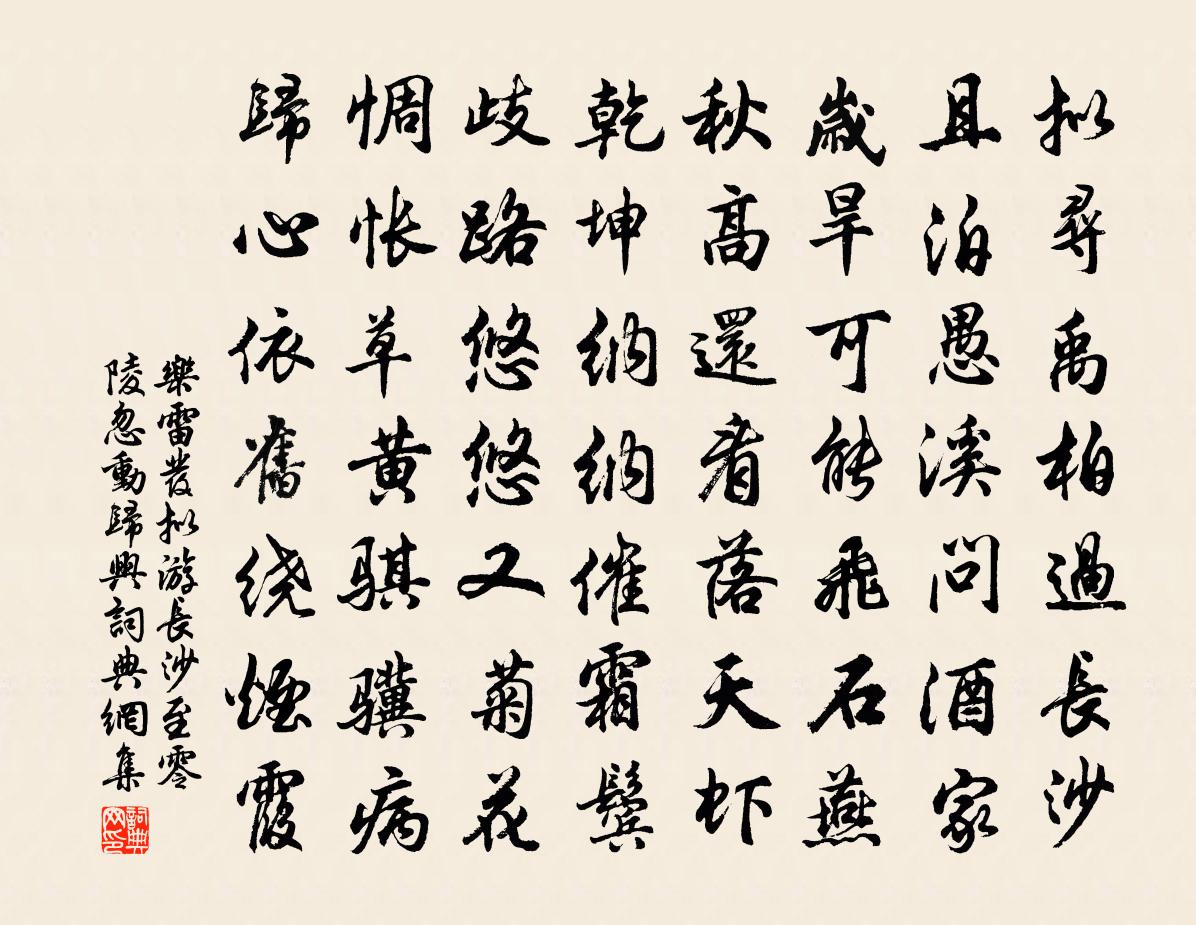 拟尋禹柏過長沙
且泊愚溪問酒家
歲旱可能飛石燕
秋高還看落天虾
乾坤纳纳催霜鬓
歧路悠悠又菊花
惆怅草黄骐骥病
歸心依舊绕煙霞
樂雷發拟游長沙至零
陵忽動歸興詞典網集
詞典
网印